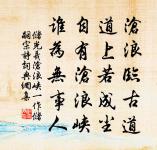 滄浪臨古道
道上若成塵
自有滄浪峽
誰為無事人
儲光羲滄浪峽一作儲
嗣宗詩詞典網集